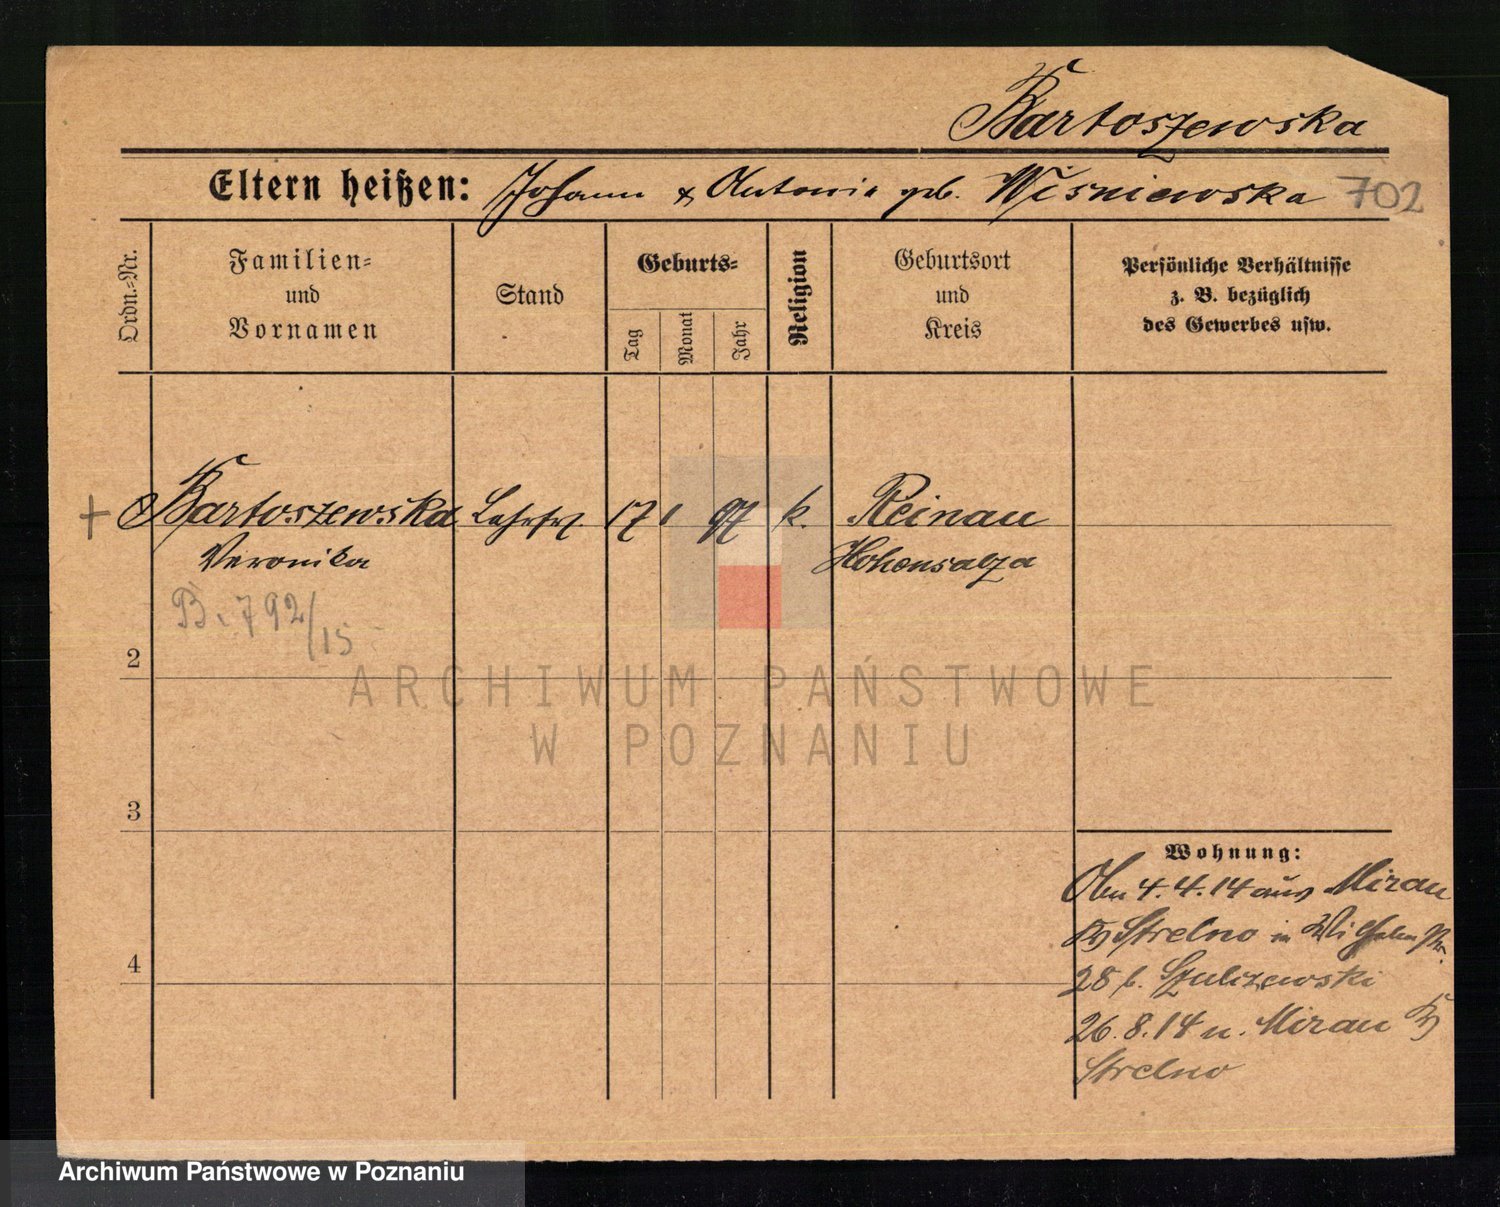 Bartoszewska
Eltern heißen: Johann & Antonie geb. Wisniewska 702
Ordn.-Nr.
Familien-
und
Vornamen
Stand
Geburts-
Tag
Monat
Jahr
Religion
Geburtsort
und
Kreis
Persönliche Verhältnisse
z. B. bezüglich
des Gewerbes usw.
+ Bartoszewska Lehrfrl. 17 1 97 k. Reinau
Veronika Hohensalza
B. 792/15
2
3
4
Wohnung:
4.4.14 aus Mirau
Kr Strelno in Wilhelmstr.
28 b. Szuliszewski
26.8.14 n. Mirau Kr
Strelno
ARCHIWUM PAŃSTWOWE
W POZNANIU
Archiwum Państwowe w Poznaniu